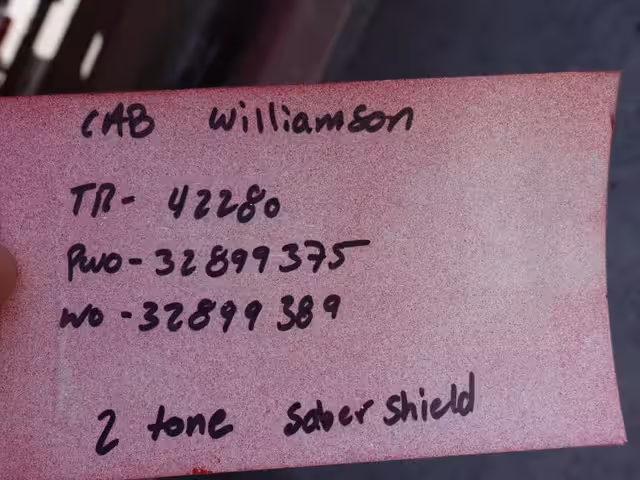 CAB Williamson
TR- 42280
PWO-32899375
WO -32899389
2 tone Saber Shield